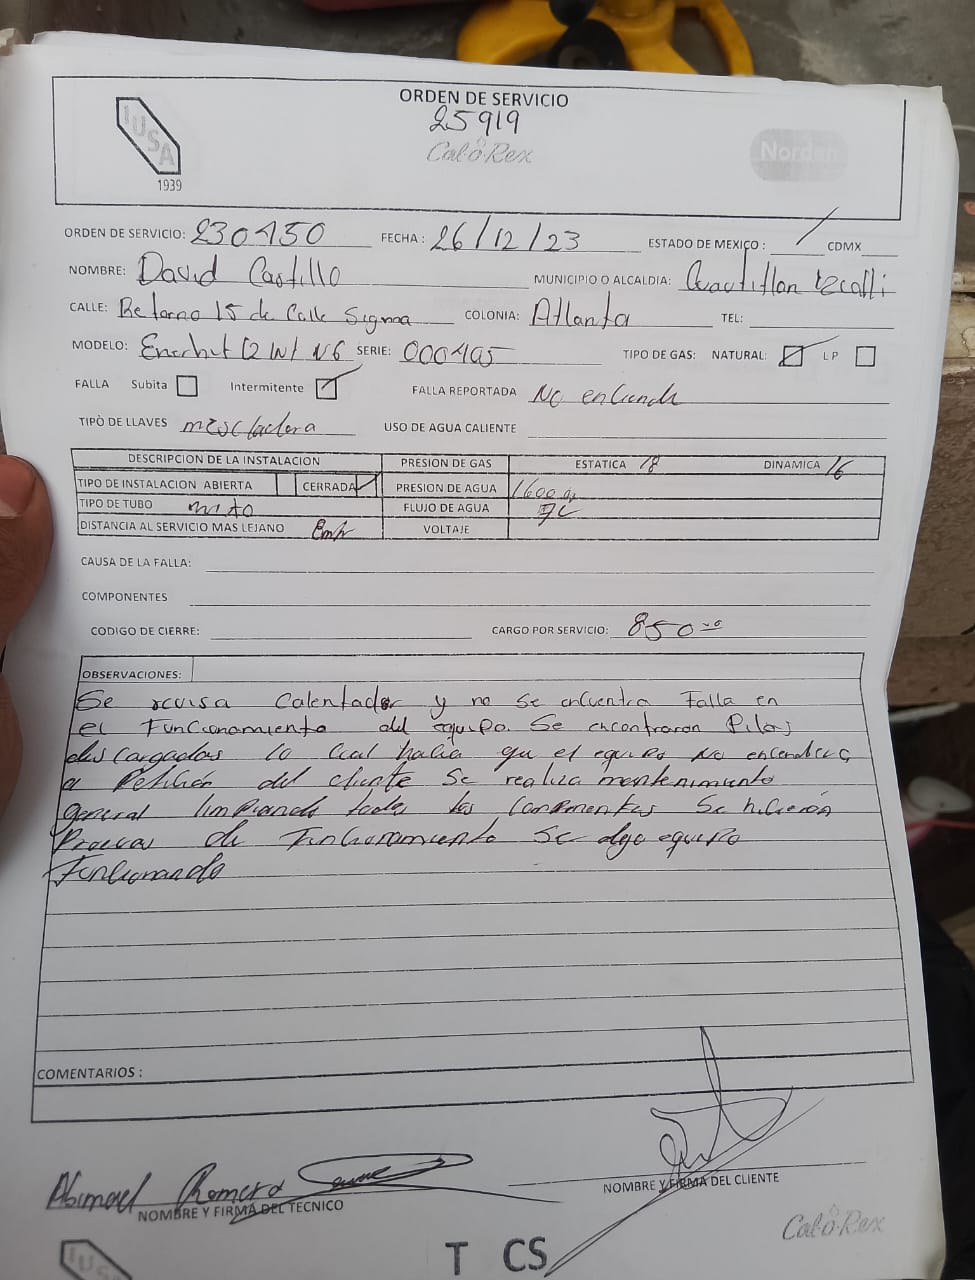 ORDEN DE SERVICIO
25919
IUSA
Cal-o-Rex
Norden
1939
ORDEN DE SERVICIO: 230450 FECHA: 26/12/23 ESTADO DE MEXICO: / CDMX
NOMBRE: David Castillo MUNICIPIO O ALCALDIA: Cuautitlan Izcalli
CALLE: Retorno 15 de Calle Sigma COLONIA: Atlanta TEL:
MODELO: SERIE: 000495 TIPO DE GAS: NATURAL: LP
FALLA Subita Intermitente FALLA REPORTADA No enciende
TIPÒ DE LLAVES mezcladora USO DE AGUA CALIENTE
DESCRIPCION DE LA INSTALACION PRESION DE GAS ESTATICA 18 DINAMICA 16
TIPO DE INSTALACION ABIERTA CERRADA PRESION DE AGUA 1600
TIPO DE TUBO mixto FLUJO DE AGUA
DISTANCIA AL SERVICIO MAS LEJANO VOLTAJE
CAUSA DE LA FALLA:
COMPONENTES
CODIGO DE CIERRE: CARGO POR SERVICIO: 850
OBSERVACIONES:
Se revisa Calentador y no se encuentra Falla en
el Funcionamiento del equipo. Se encontraron Pilas
descargadas lo cual hacia que el equipo No encendiera
a Petición del cliente Se realiza mantenimiento
general limpiando todos los Componentes Se hicieron
Pruevas de Funcionamiento Se dejo equipo
Funcionando
COMENTARIOS :
Abimael Romero
NOMBRE Y FIRMA DEL TECNICO
NOMBRE Y FIRMA DEL CLIENTE
Cal-o-Rex
IUSA
T CS